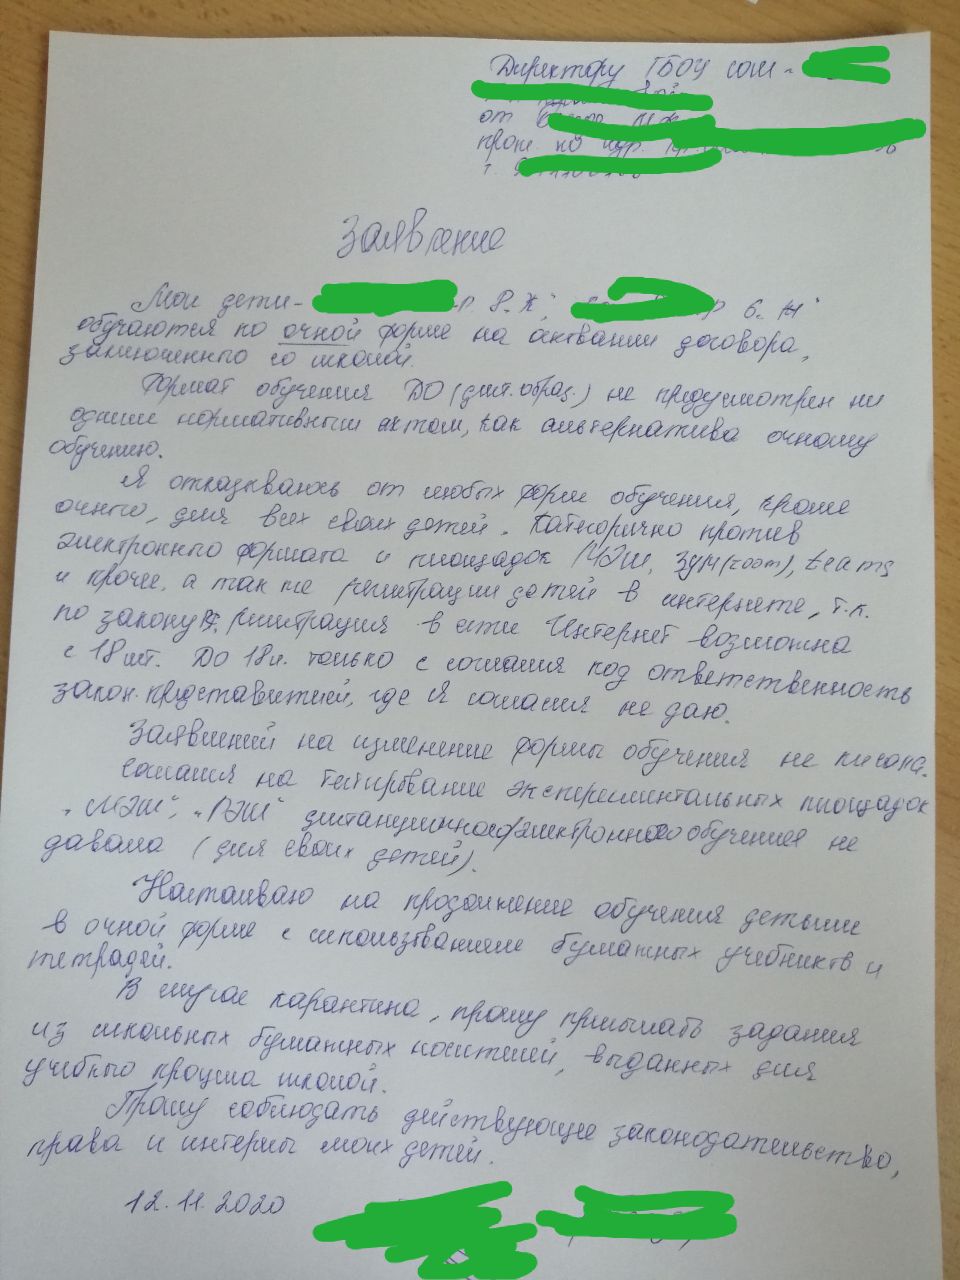 Директору ГБОУ сош -
от
прож. по адр.
т.
Заявление
Мои дети - 8 "К", 6 "Н"
обучаются по очной форме на основании договора,
заключенного со школой.
Формат обучения ДО (дист. образ.) не предусмотрен ни
одним нормативным актом, как альтернатива очному
обучению.
Я отказываюсь от любых форм обучения, кроме
очного, для всех своих детей. Категорично против
электронного формата и площадок МЭШ, зум (zoom), teams
и прочее, а так же регистрации детей в интернете, т.к.
по закону регистрация в сети Интернет возможна
с 18 лет. До 18 л. только с согласия под ответственность
закон. представителей, где я согласия не даю.
Заявлений на изменение формы обучения не писала.
Согласия на тестирование экспериментальных площадок
"МЭШ", "РЭШ" дистанционного/электронного обучения не
давала (для своих детей).
Настаиваю на продолжение обучения детьми
в очной форме с использованием бумажных учебников и
тетрадей.
В случае карантина, прошу присылать задания
из школьных бумажных носителей, выданных для
учебного процесса школой.
Прошу соблюдать действующее законодательство,
права и интересы моих детей.
12.11.2020